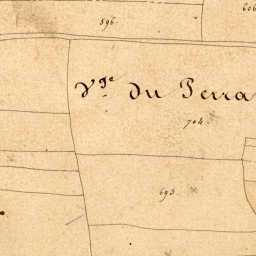 606
596
V.ge du Perra
704.
693